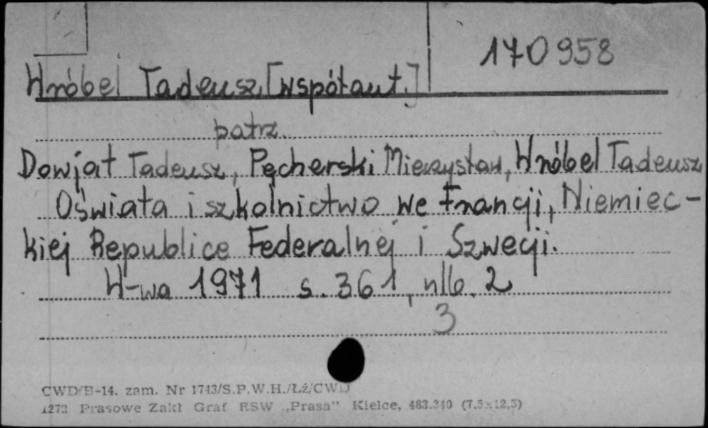 170958
Wróbel Tadeusz [współaut.]
patrz
Dowjat Tadeusz, Pęcherski Mieczysław, Wróbel Tadeusz
Oświata i szkolnictwo we Francji, Niemiec-
kiej Republice Federalnej i Szwecji.
W-wa 1971 s. 361, nlb. 2
3
CWD/B-14. zam. Nr 1743/S.P.W.H./Łź/CWD
1272 Prasowe Zakł Graf RSW „Prasa" Kielce, 483.340 (7,5×12,5)